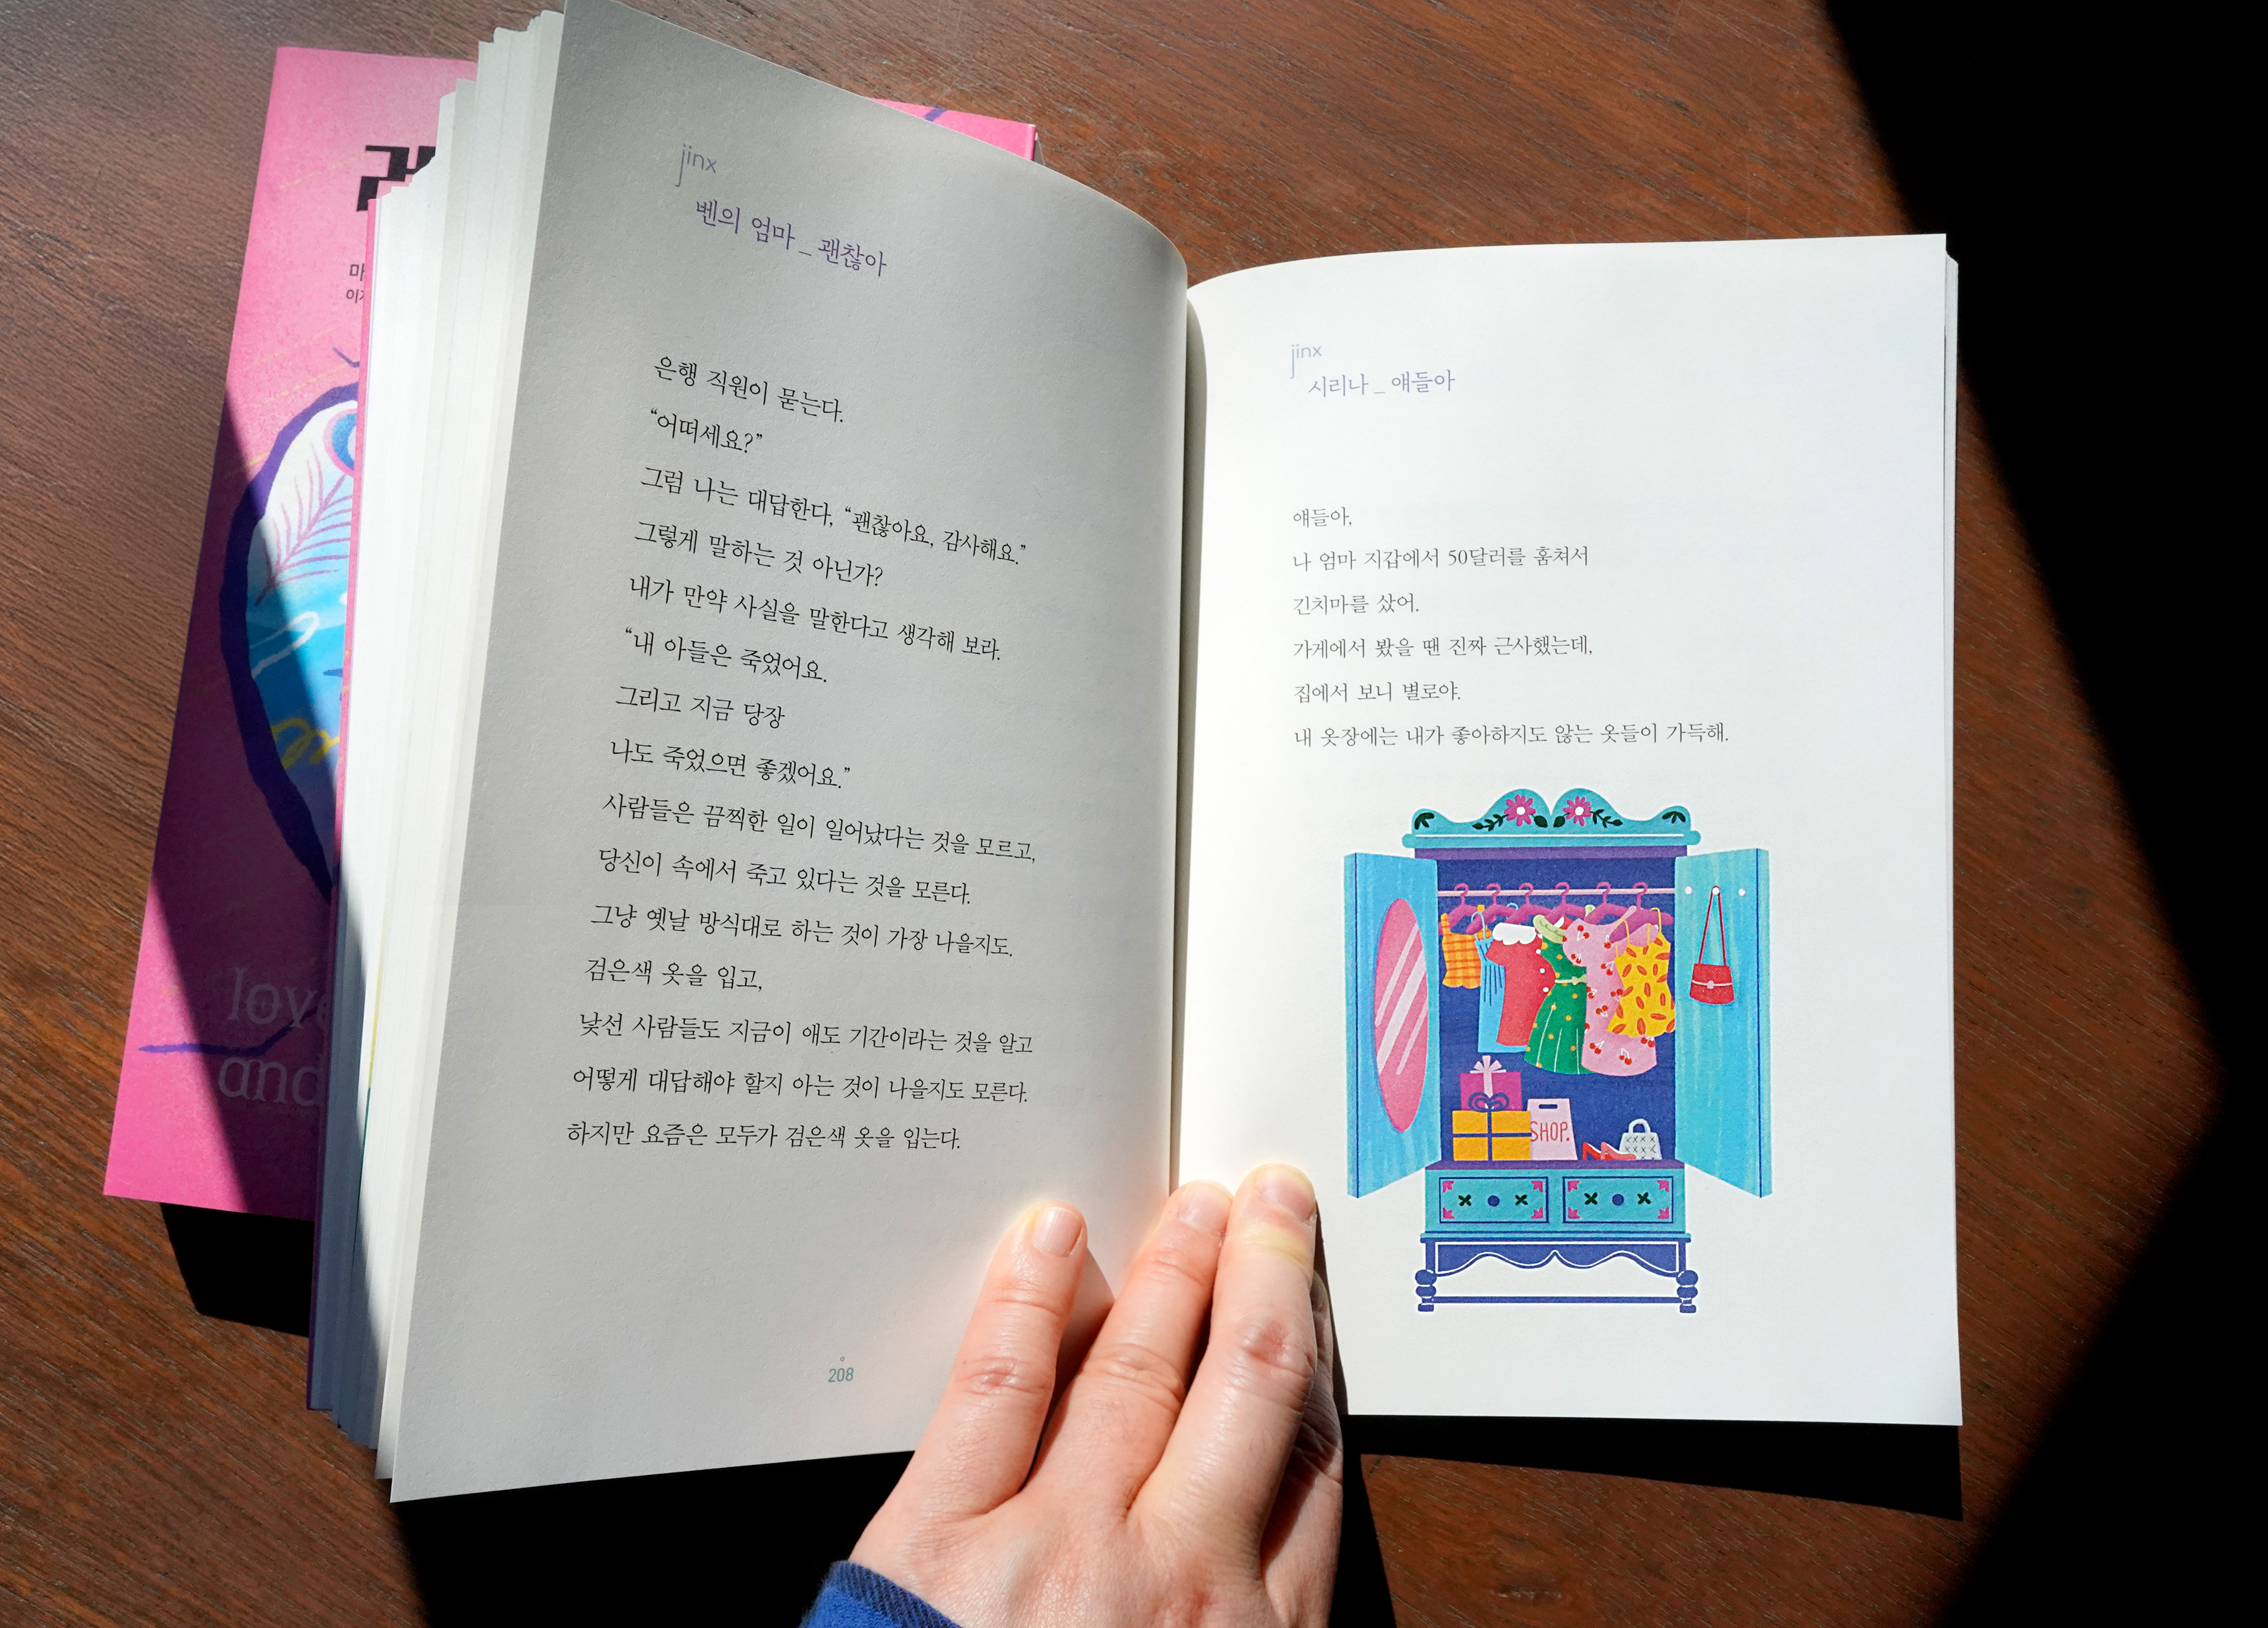 jinx
벤의 엄마 _ 괜찮아
은행 직원이 묻는다.
“어떠세요?”
그럼 나는 대답한다, “괜찮아요, 감사해요.”
그렇게 말하는 것 아닌가?
내가 만약 사실을 말한다고 생각해 보라.
“내 아들은 죽었어요.
그리고 지금 당장
나도 죽었으면 좋겠어요.”
사람들은 끔찍한 일이 일어났다는 것을 모르고,
당신이 속에서 죽고 있다는 것을 모른다.
그냥 옛날 방식대로 하는 것이 가장 나을지도.
검은색 옷을 입고,
낯선 사람들도 지금이 애도 기간이라는 것을 알고
어떻게 대답해야 할지 아는 것이 나을지도 모른다.
하지만 요즘은 모두가 검은색 옷을 입는다.
208
jinx
시리나 _ 얘들아
얘들아,
나 엄마 지갑에서 50달러를 훔쳐서
긴치마를 샀어.
가게에서 봤을 땐 진짜 근사했는데,
집에서 보니 별로야.
내 옷장에는 내가 좋아하지도 않는 옷들이 가득해.
SHOP.
and